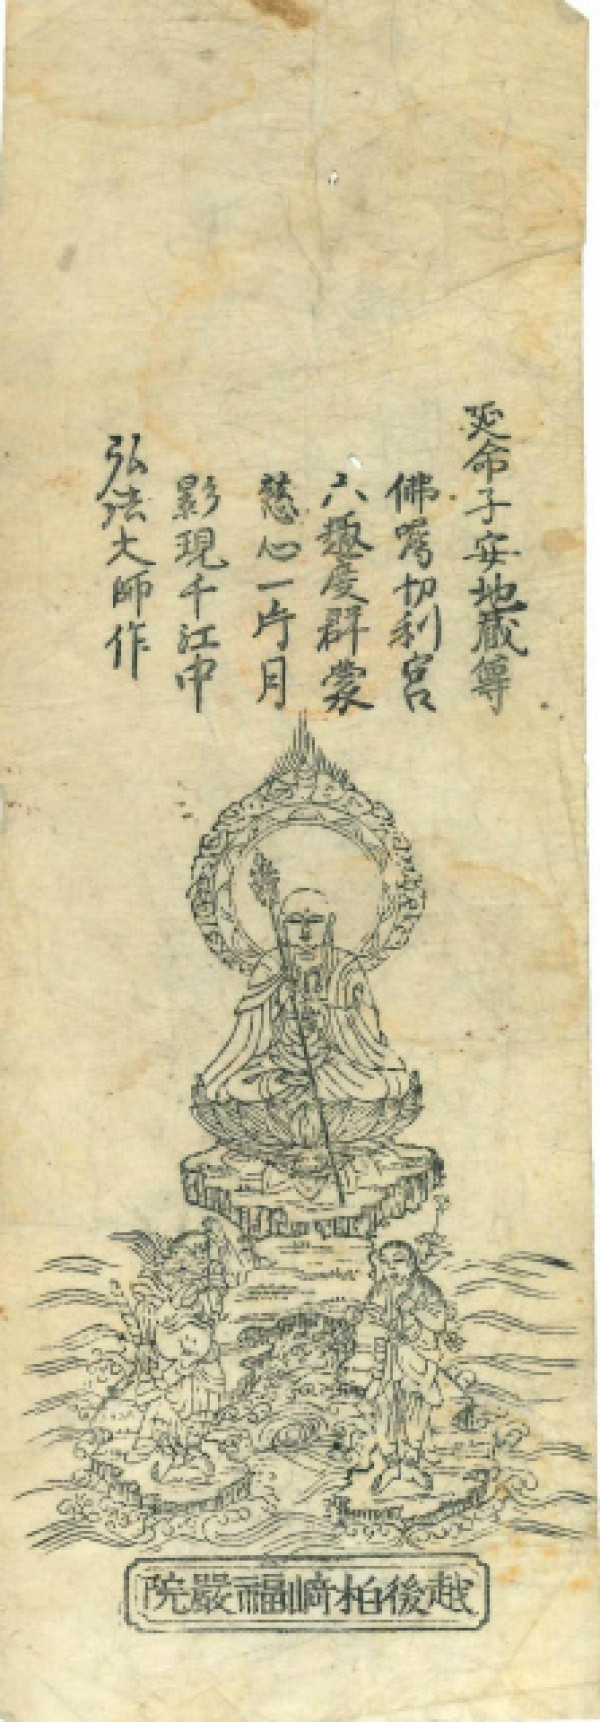 延命子安地蔵尊
佛嘱忉利宮
六趣度群蒙
慈心一片月
影現千江中
弘法大師作
越後柏﨑福嚴院